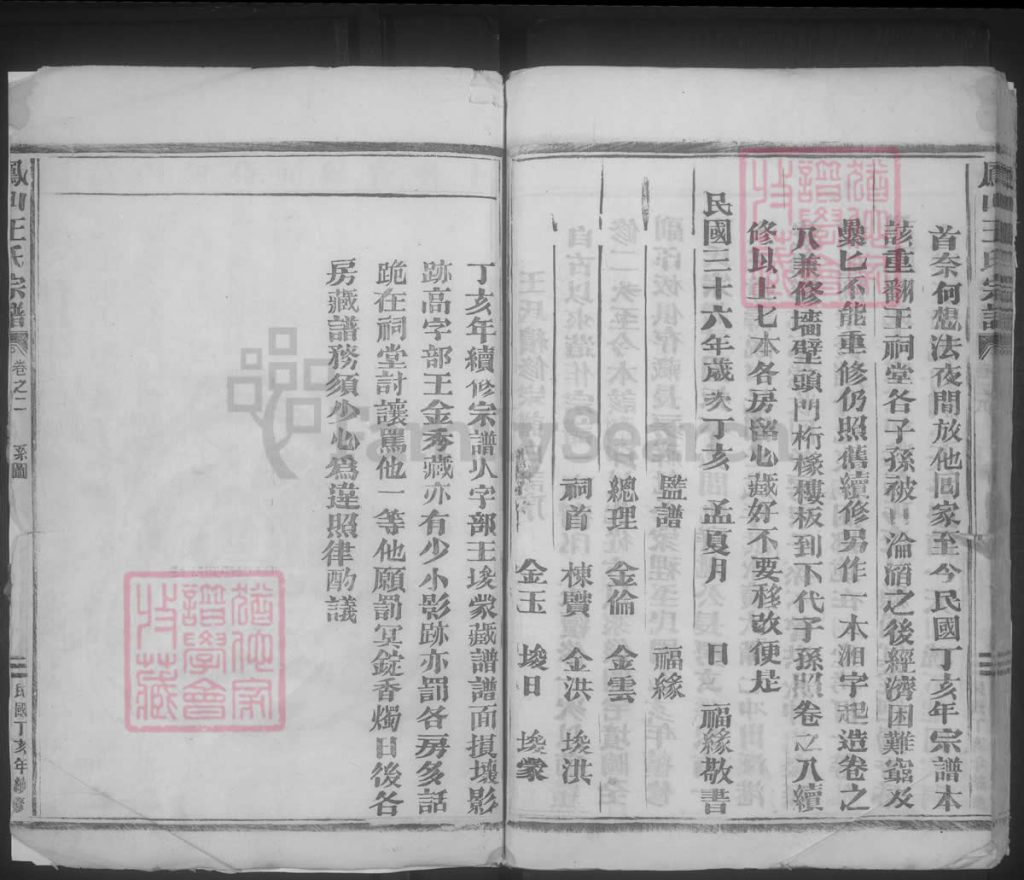 鳳山王氏宗譜
首奈何想法夜間放他囬家至今民國丁亥年宗譜本
該重翻王祠堂各子孫被日淪湎之後經濟困難窮及
纍匕不能重修仍照舊續修另作一本湘字起造卷之
八兼修墻壁頭門桁椽樓板到下代子孫照卷之八續
修以上七本各房留心藏好不要移改便是
民國三十六年歲次丁亥 孟夏月 日 福緣敬書
監譜 福緣
總理 金倫 金雲
祠首 棟贒 金洪 埈洪
金玉 埈日 埈蒙
丁亥年續修宗譜火字部王埈蒙藏譜譜面損壞影
跡高字部王金秀藏亦有少小影跡亦罰各房多話
跪在祠堂討讓罵他一等他願罰冥錠香燭日後各
房藏譜務須少心為違照律酌議
鳳山王氏宗譜 卷之二 系圖 二 民國丁亥年續修
猶他家譜學會珍藏
猶他家譜學會珍藏
FamilySearch